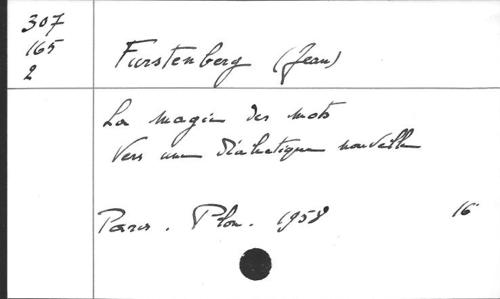 307
165
2
Furstenberg (Jean)
La magie des mots
Vers une dialectique nouvelle
Paris. Plon. 1958 16°